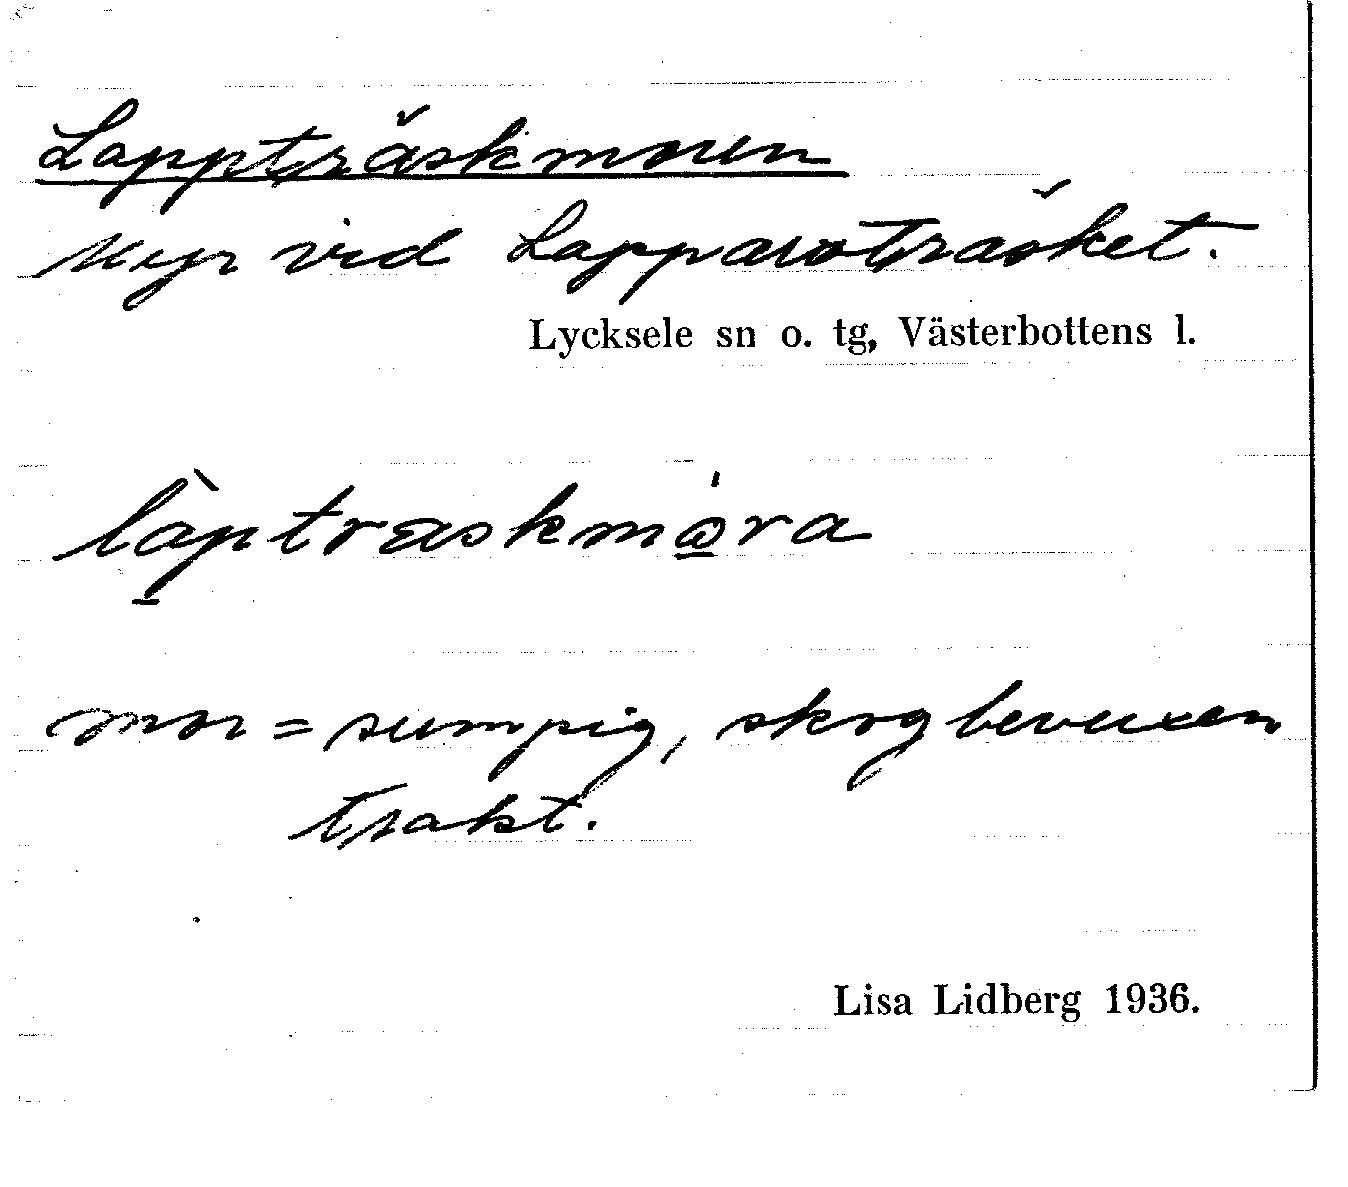 Lappträskmoren
Myr vid Lappavaträsket.
Lycksele sn o. tg, Västerbottens l.
làptraskmòra
mor = sumpig, skogbevuxen
trakt.
Lisa Lidberg 1936.